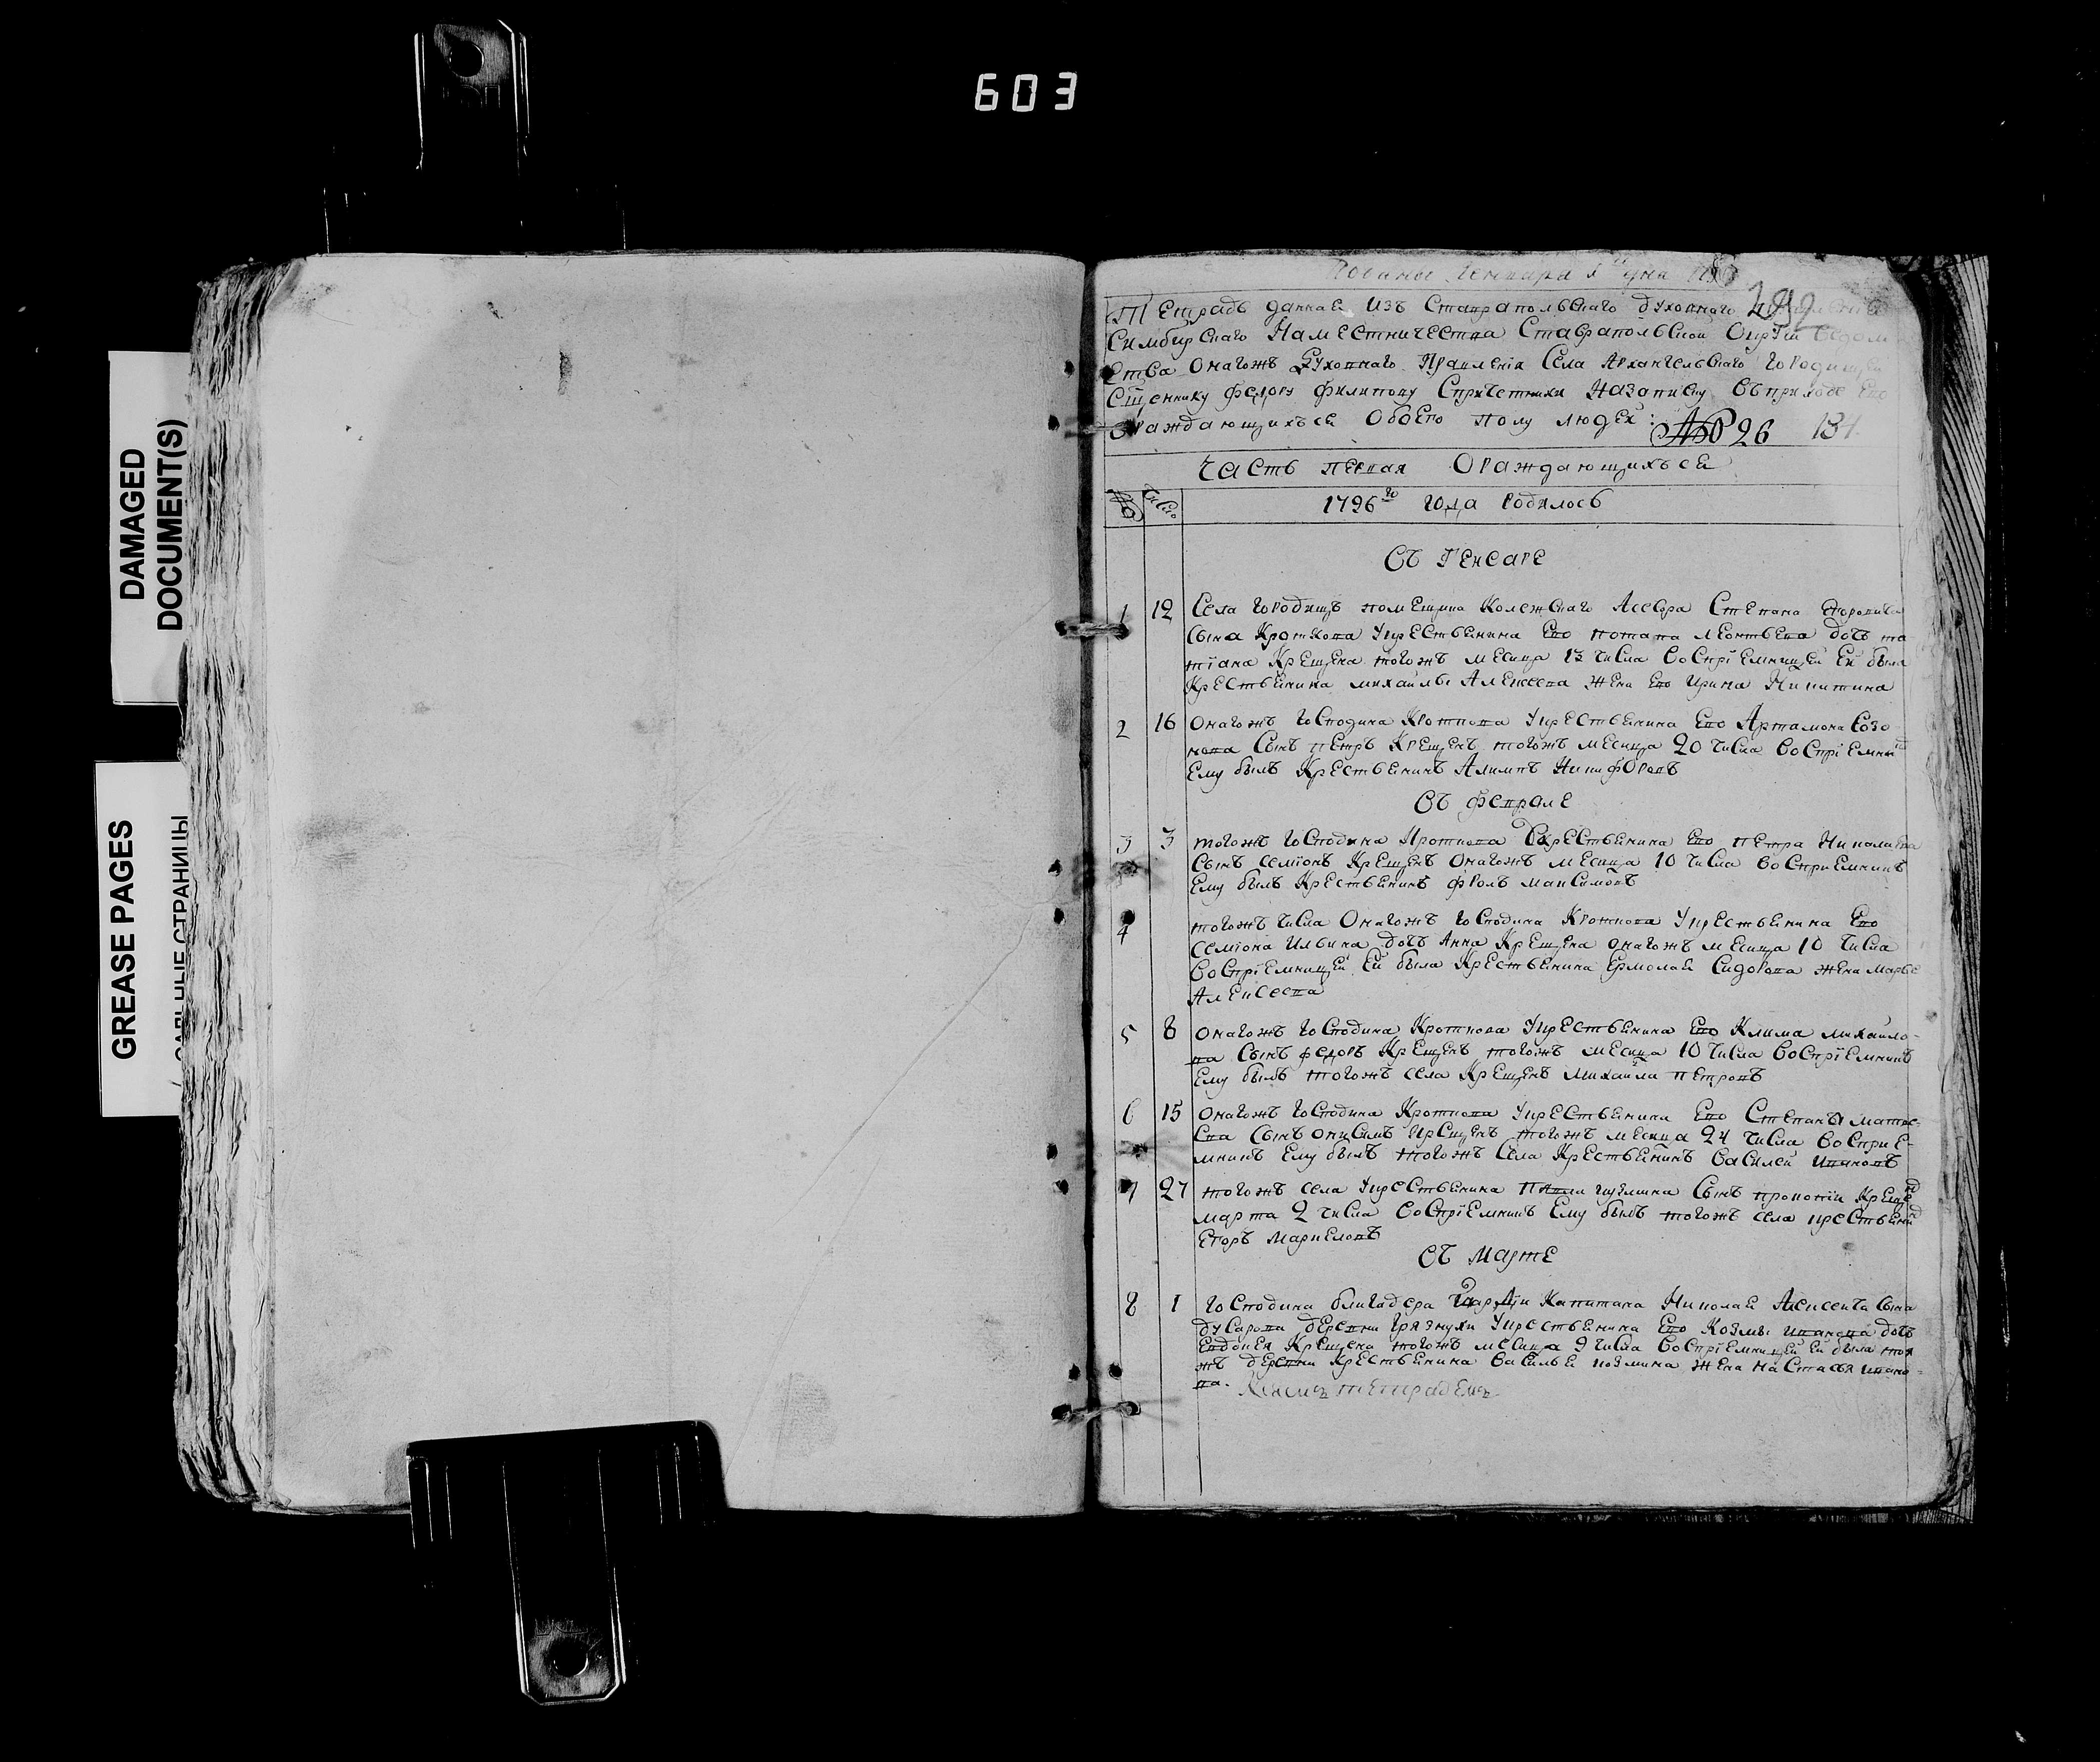 603
DAMAGED
DOCUMENT(S)
GREASE PAGES
САЛЬНЫЕ СТРАНИЦЫ
292
Тетрадь даннаѧ изъ Ставрапольскаго духовнаго
Симбирскаго Наместничества Ставрапольской округи ведом
ства онагожъ духовнаго правления Села Архангельскаго городищъ
Священнику Федору Филипову Спричетники назаписку въприходе ево
раждающихъся обоего полу людей: № 26 134
Часть первая Ораждающихъся
№ число 1796го года родилось
Въ Генваре
1 12 Села городищъ помещика Колежскаго Асесора Степана Егоровича
сына Кроткова Укрестьянина ево потапа леонтьева дочь та
тiана Крещена тогожъ месяца 13 числа Восприемницей ей была
Крестьянина михайлы Алексеева жена ево Ирина Никитина
2 16 Онагожъ господина Кроткова Укрестьянина ево Артамона Созо
нова сынъ петръ Крещенъ тогожъ месяца 20 числа Восприемникъ
ему былъ Крестьянинъ Алимпъ Никифоровъ
Въ феврале
3 3 тогожъ господина Кроткова Укрестьянина ево петра Николаева
сынъ семионъ Крещенъ онагожъ месяца 10 числа Восприемникъ
ему былъ Крестьянинъ фролъ максимовъ
4 тогожъ числа Онагожъ господина Кроткова Укрестьянина ево
семiона Ильина дочь Анна Крещена онагожъ месяца 10 числа
Восприемницей ей была Крестьянина ермолай Сидорова жена марья
Алексеева
5 8 онагожъ господина Кроткова Укрестьянина ево Клима михайло-
ва сынъ федоръ Крещенъ тогожъ месяца 10 числа Восприемникъ
ему былъ тогожъ села Крещенъ михайла петровъ
6 15 онагожъ господина Кроткова Укрестьянина ево Степана матве-
ева сынъ онисимъ крещенъ тогожъ месяца 24 числа Восприе-
мникъ ему былъ тогожъ села Крестьянинъ Василей ивановъ
7 27 тогожъ села Укрестьянина сынъ прокопiй Крещенъ
марта 2 числа Восприемникъ ему былъ тогожъ села крестьянинъ
егоръ маркеловъ
Въ марте
8 1 господина бригадера Гвардiи Капитана Николай Алексеича сына
дусарова деревни грязнухи Укрестьянина ево Козмы иванова дочь
евдокия Крещена тогожъ месяца 9 числа Восприемницей ей была тоя
жъ деревни Крестьянина василья козмина жена настасья ивано-
ва.